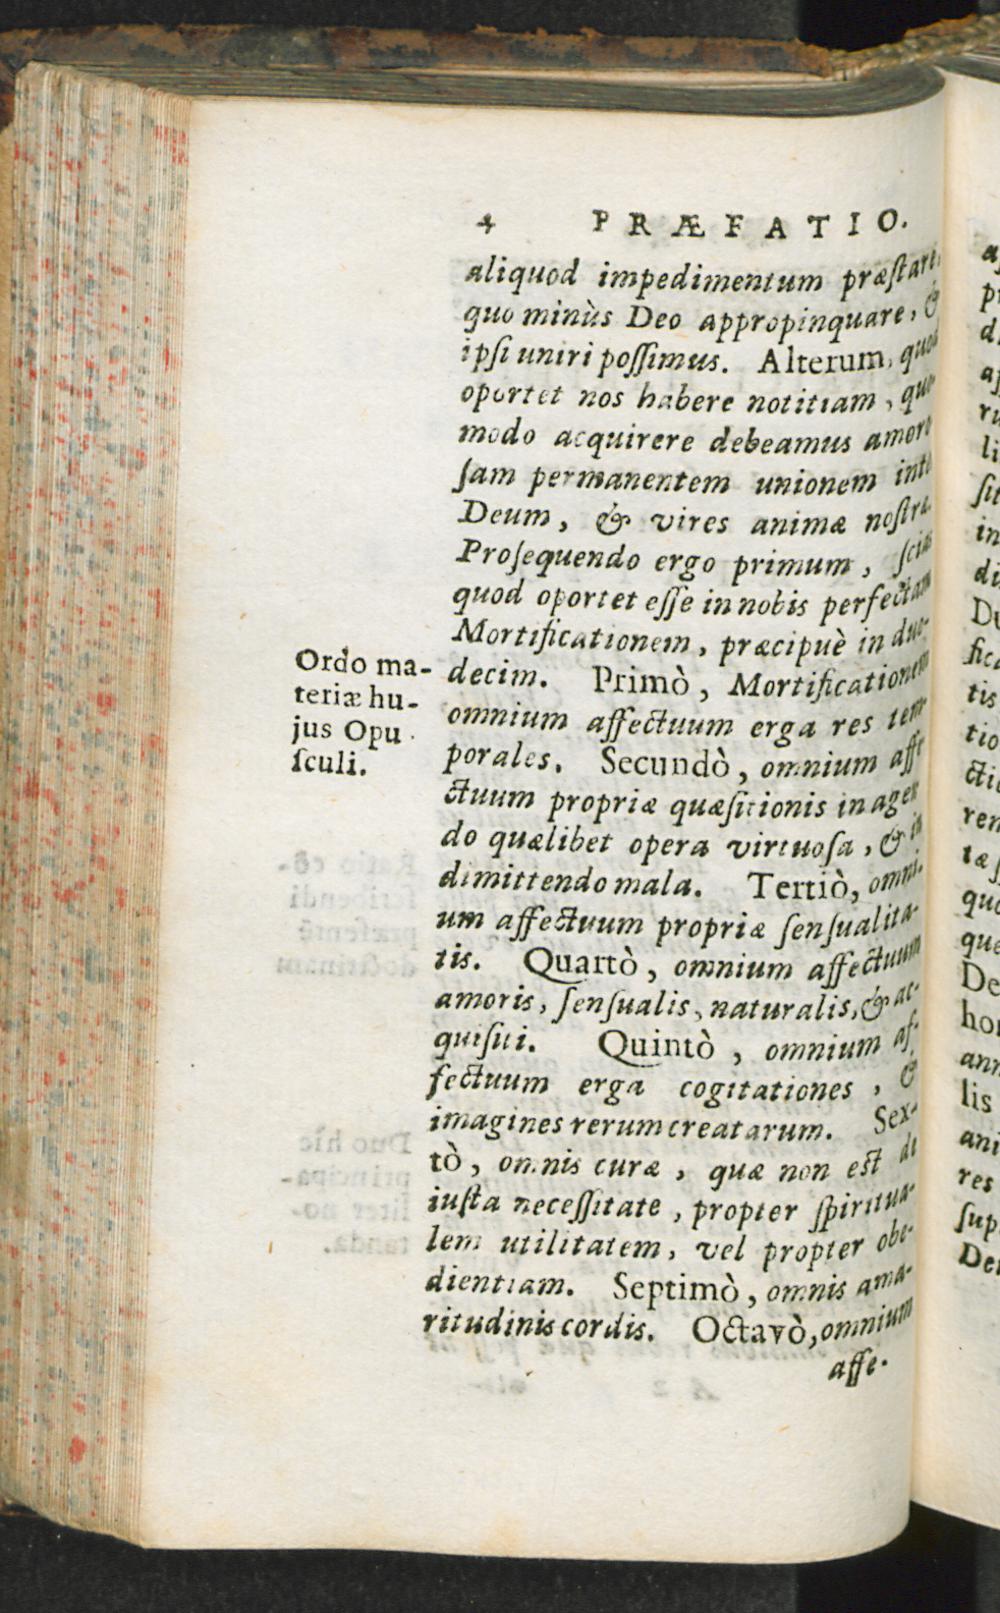 4 PRÆFATIO.
aliquod impedimentum præſtari,
quo minùs Deo appropinquare, &
ipſi uniri poſſimus. Alterum, quod
oportet nos habere notitiam, quo
modo acquirere debeamus amoro
ſam permanentem unionem inte
Deum, & vires animæ noſtra.
Proſequendo ergo primum, ſcias
quod oportet eſſe in nobis perfectam
Mortificationem, præcipuè in duo-
Ordo ma-
teriæ hu-
jus Opu
ſculi.
decim. Primò, Mortificationem
omnium affectuum erga res tem
porales. Secundò, omnium affe
ctuum propriæ quæſitionis in agen
do quælibet opera virtuoſa, & in
dimittendo mala. Tertiò, omni-
um affectuum propriæ ſenſualita-
tis. Quartò, omnium affectuum
amoris, ſenſualis, naturalis, & ac-
quiſiti. Quintò, omnium af-
fectuum erga cogitationes, &
imagines rerum creatarum. Sex-
tò, omnis curæ, quæ non est de
iuſta neceſſitate, propter ſpiritua-
lem utilitatem, vel propter obe-
dientiam. Septimò, omnis ama-
ritudinis cordis. Octavò, omnium
affe-
ſit
in
di
Du
tis
tio
ren
quo
que
De
hon
ann
lis
ani
res
ſup